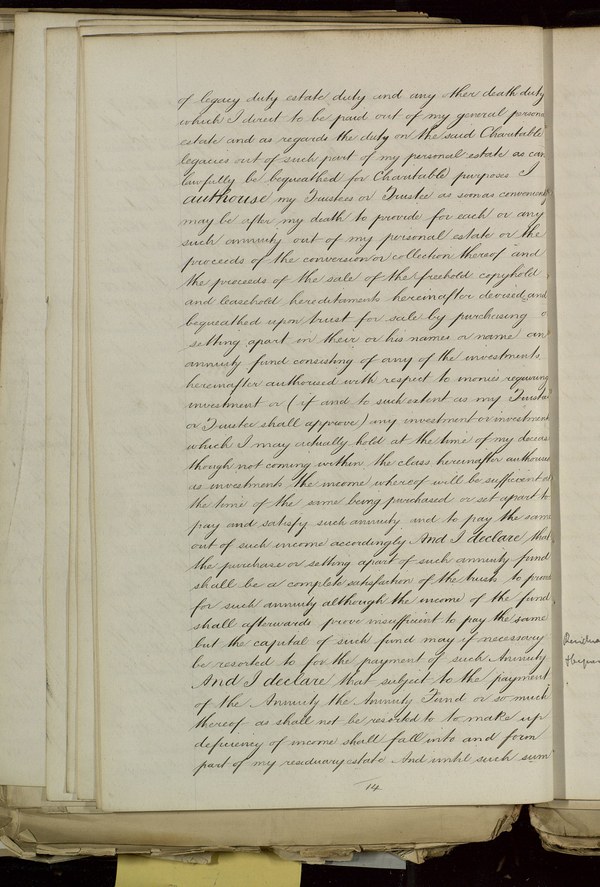 of legacy duty estate duty and any other death duty
which I direct to be paid out of my general personal
estate and as regards the duty on the said Charitable
legacies out of such part of my personal estate as can
lawfully be bequeathed for Charitable purposes I
authorise my Trustees or Trustee as soon as conveniently
may be after my death to provide for each or any
such annuity out of my personal estate or the
proceeds of the conversion or collection thereof and
the proceeds of the sale of the freehold copyhold
and leasehold hereditaments hereinafter devised and
bequeathed upon trust for sale by purchasing o
setting apart in their or his names or name an
annuity fund consisting of any of the investments
hereinafter authorised with respect to monies requiring
investment or (if and to such extent as my Trustees
or Trustee shall approve) my investment or investments
which I may actually hold at the time of my deceas
though not coming within the class hereinafter authorised
as investments the income whereof will be sufficient at
the time of the same being purchased or set apart to
pay and satisfy such annuity and to pay the same
out of such income accordingly And I declare that
the purchase or setting apart of such annuity fund
shall be a complete satisfaction of the trust to provide
for such annuity although the income of the fund
shall afterwards prove insufficient to pay the same
but the capital of such fund may if necessary
be resorted to for the payment of such Annuity
And I declare that subject to the payment
of the Annuity the Annuity Fund or so much
thereof as shall not be resorted to to make up
deficiency of income shall fall into and form
part of my residuary estate And until such sum
14